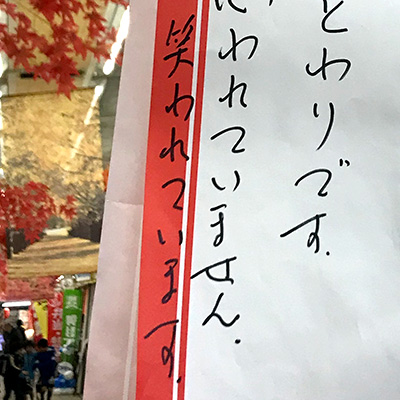 とわりです.
われていません.
笑われています.